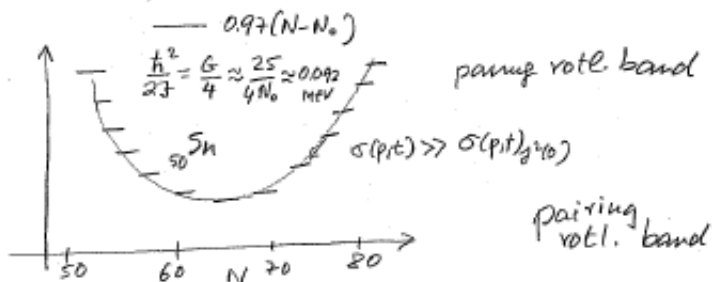 0.97(N-N₀)
ħ²/2J = G/4 ≈ 25/4N₀ ≈ 0.092 MeV
pairing rotl. band
₅₀Sn
σ(p,t) >> σ(p,t)j²(0)
pairing
rotl. band
50 60 N 70 80